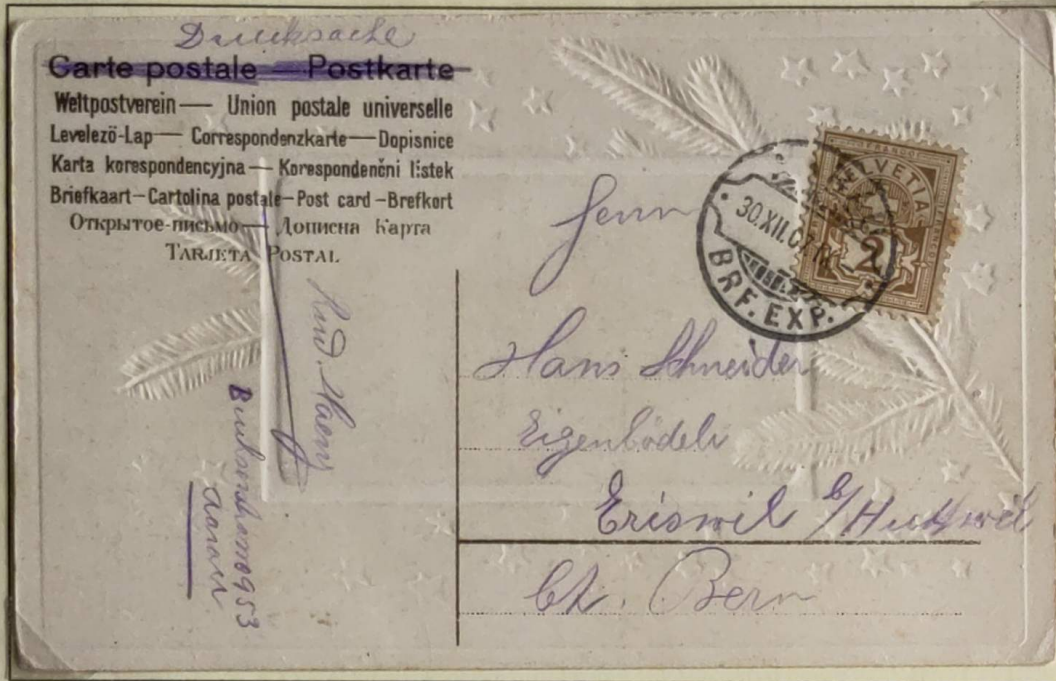 Drucksache
Carte postale — Postkarte
Weltpostverein — Union postale universelle
Levelező-Lap — Correspondenzkarte — Dopisnice
Karta korespondencyjna — Korespondenčni listek
Briefkaart — Cartolina postale — Post card — Brefkort
Открытое-письмо — Дописна Карта
TARJETA POSTAL
HELVETIA
FRANCO
2
30.XII.07
BRF. EXP.
Herrn
Hans Schneider
Eigenbödeli
Eriswil b/Huttwil
Ct. Bern
Rud.
953
Aarau